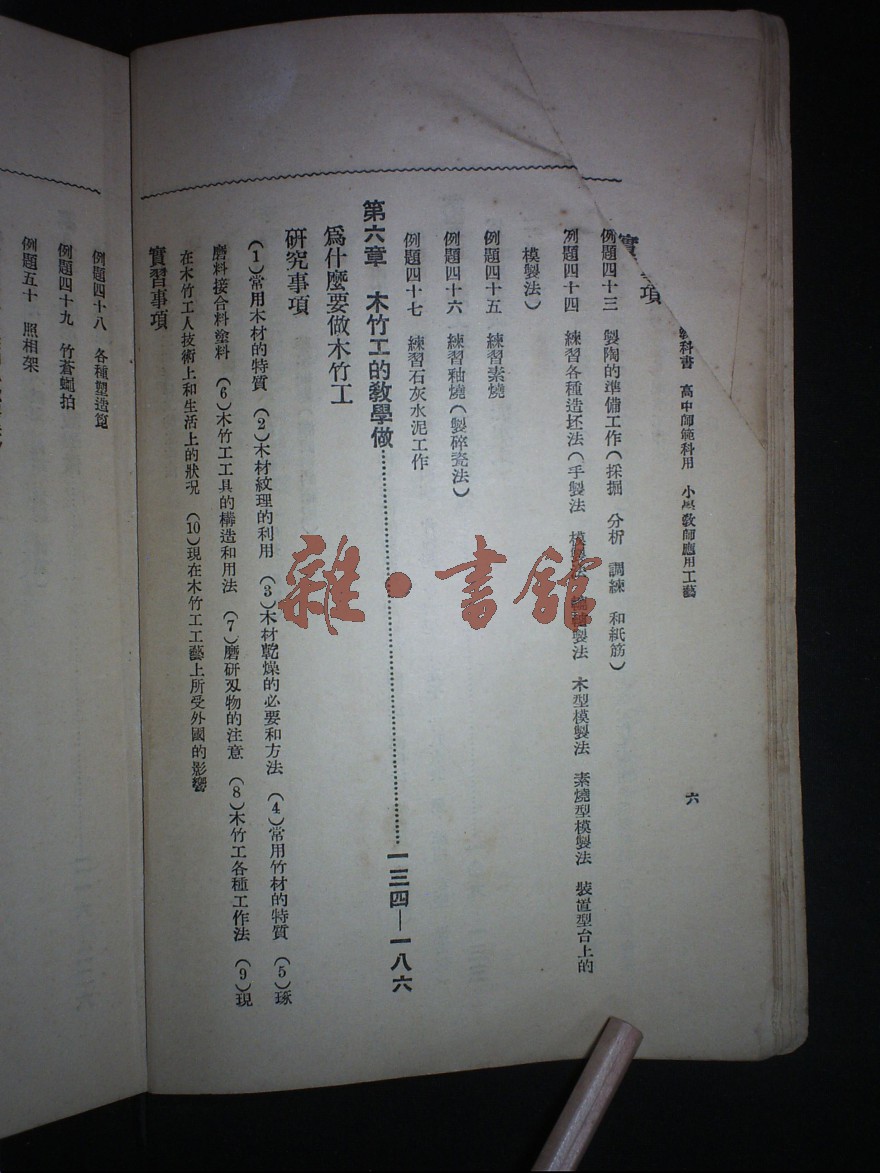 教科書　高中師範科用　小學教師應用工藝
六
實　事項
例題四十三　製陶的準備工作(採掘　分析　調練　和紙筋)
例題四十四　練習各種造坯法(手製法　模製法　製法　木型模製法　素燒型模製法　裝置型台上的
模製法)
例題四十五　練習素燒
例題四十六　練習釉燒(製碎瓷法)
例題四十七　練習石灰水泥工作
第六章　木竹工的教學做……………………一三四—一八六
爲什麼要做木竹工
研究事項
(1)常用木材的特質　(2)木材紋理的利用　(3)木材乾燥的必要和方法　(4)常用竹材的特質　(5)琢
磨料接合料塗料　(6)木竹工工具的構造和用法　(7)磨研刄物的注意　(8)木竹工各種工作法　(9)現
在木竹工人技術上和生活上的狀况　(10)現在木竹工工藝上所受外國的影響
實習事項
例題四十八　各種塑造篦
例題四十九　竹蒼蠅拍
例題五十　照相架
雜·書館